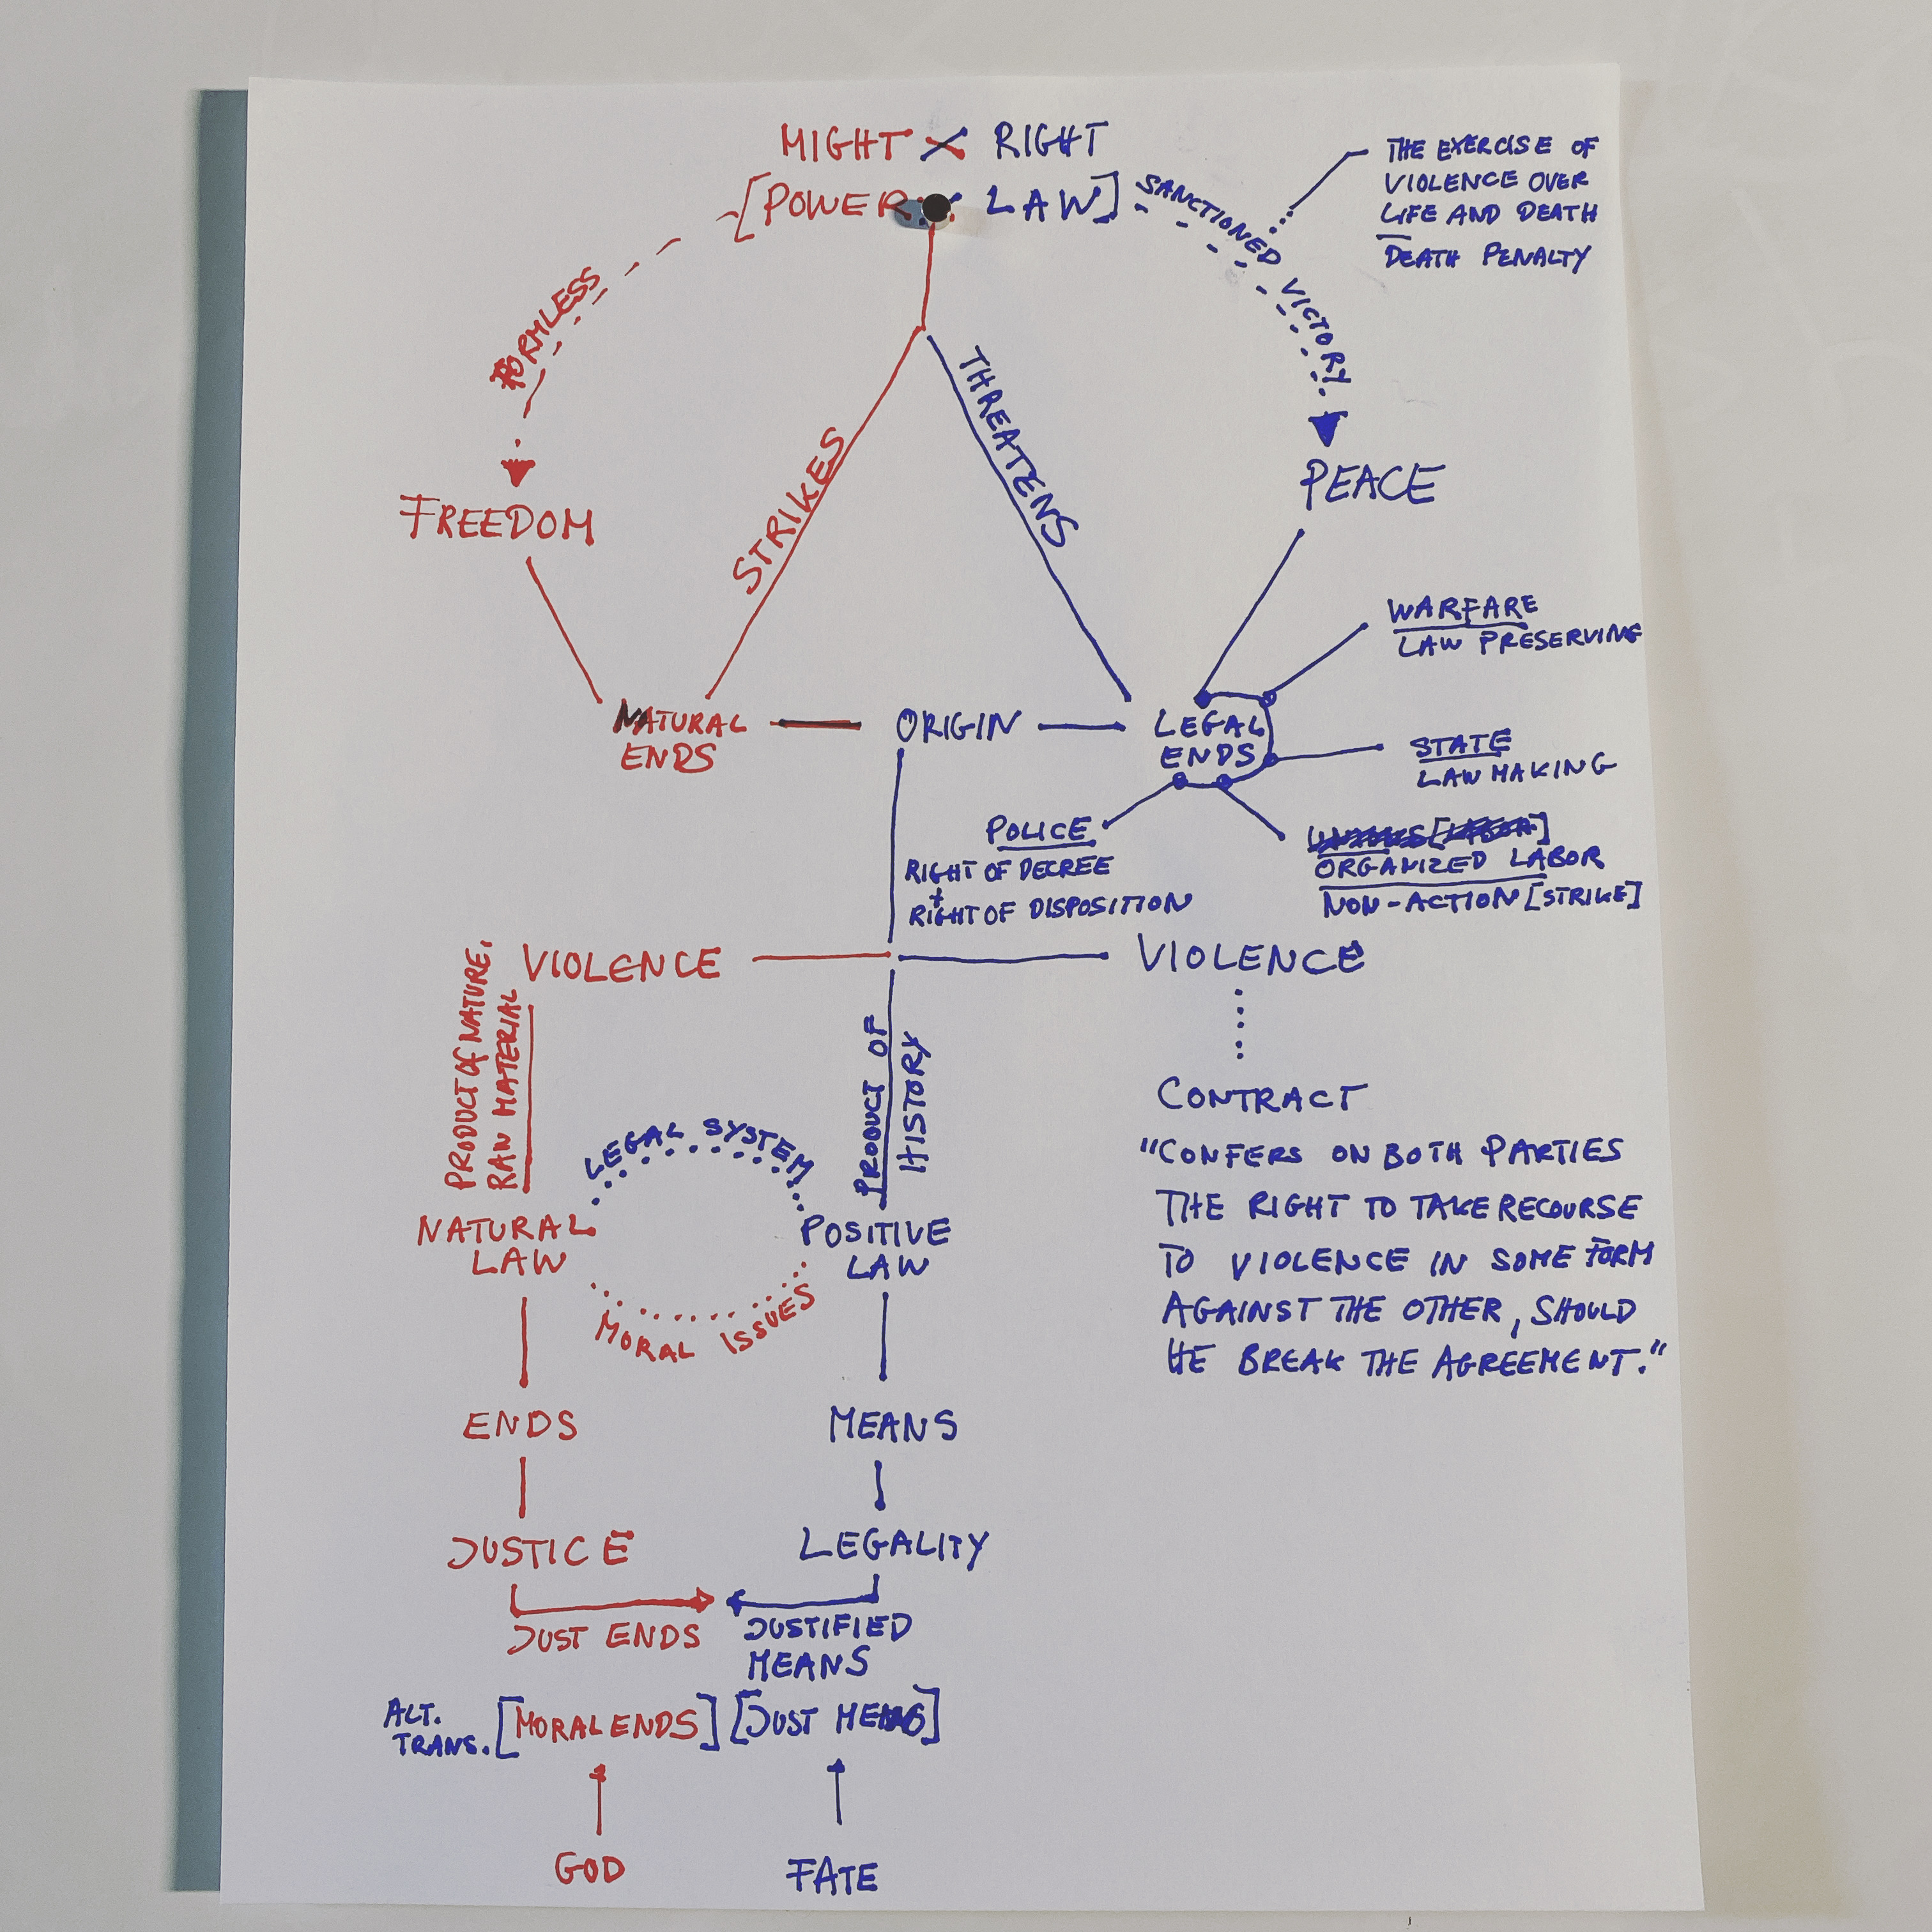 MIGHT RIGHT
[POWER LAW]
SANCTIONED VICTORY.
THE EXERCISE OF
VIOLENCE OVER
LIFE AND DEATH
DEATH PENALTY
FORMLESS
FREEDOM
STRIKES
THREATENS
PEACE
WARFARE
LAW PRESERVING
NATURAL
ENDS
ORIGIN
LEGAL
ENDS
STATE
LAW MAKING
POLICE
RIGHT OF DECREE
+
RIGHT OF DISPOSITION
ORGANIZED LABOR
NON-ACTION [STRIKE]
VIOLENCE
VIOLENCE
PRODUCT OF NATURE.
RAW MATERIAL
PRODUCT OF
HISTORY
CONTRACT
"CONFERS ON BOTH PARTIES
THE RIGHT TO TAKE RECOURSE
TO VIOLENCE IN SOME FORM
AGAINST THE OTHER, SHOULD
HE BREAK THE AGREEMENT."
LEGAL SYSTEM
NATURAL
LAW
POSITIVE
LAW
MORAL ISSUES
ENDS
MEANS
JUSTICE
LEGALITY
JUST ENDS
JUSTIFIED
MEANS
ALT.
TRANS.
[MORAL ENDS] [JUST MEANS]
GOD
FATE